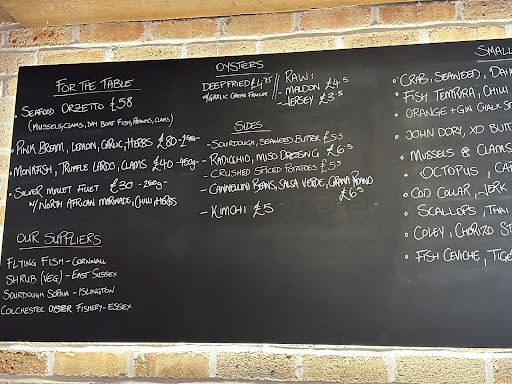 FOR THE TABLE
• SEAFOOD ORZETTO £58
(MUSSELS, CLAMS, DAY BOAT FISH, PRAWNS, CLAMS)
• PINK BREAM, LEMON, GARLIC, HERBS £80
• MONKFISH, TRUFFLE LARDO, CLAMS £40 - 450g
• SILVER MULLET FILLET £30 - 250g
W/ NORTH AFRICAN MARINADE, CHILLI, HERBS
OUR SUPPLIERS
FLYING FISH - CORNWALL
SHRUB (VEG) - EAST SUSSEX
SOURDOUGH SOPHIA - ISLINGTON
COLCHESTER OYSTER FISHERY - ESSEX
OYSTERS
DEEP FRIED £4.75
W/ GARLIC CREME FRAICHE
RAW:
- MALDON £4.5
- JERSEY £3.5
SIDES
- SOURDOUGH, SEAWEED BUTTER £5.5
- RADICCHIO, MISO DRESSING £6.5
- CRUSHED SPICED POTATOES £5.5
- CANNELLINI BEANS, SALSA VERDE, GRANA PADANO
£6.5
- KIMCHI £5
SMALL
• CRAB, SEAWEED,
• FISH TEMPURA, CHILLI
• ORANGE + GIN CHALK
• JOHN DORY, XO BUT
• MUSSELS & CLAMS
• OCTOPUS,
• COD COLLAR, JERK
• SCALLOPS, THAI
• COLEY, CHORIZO
• FISH CEVICHE, TIGE